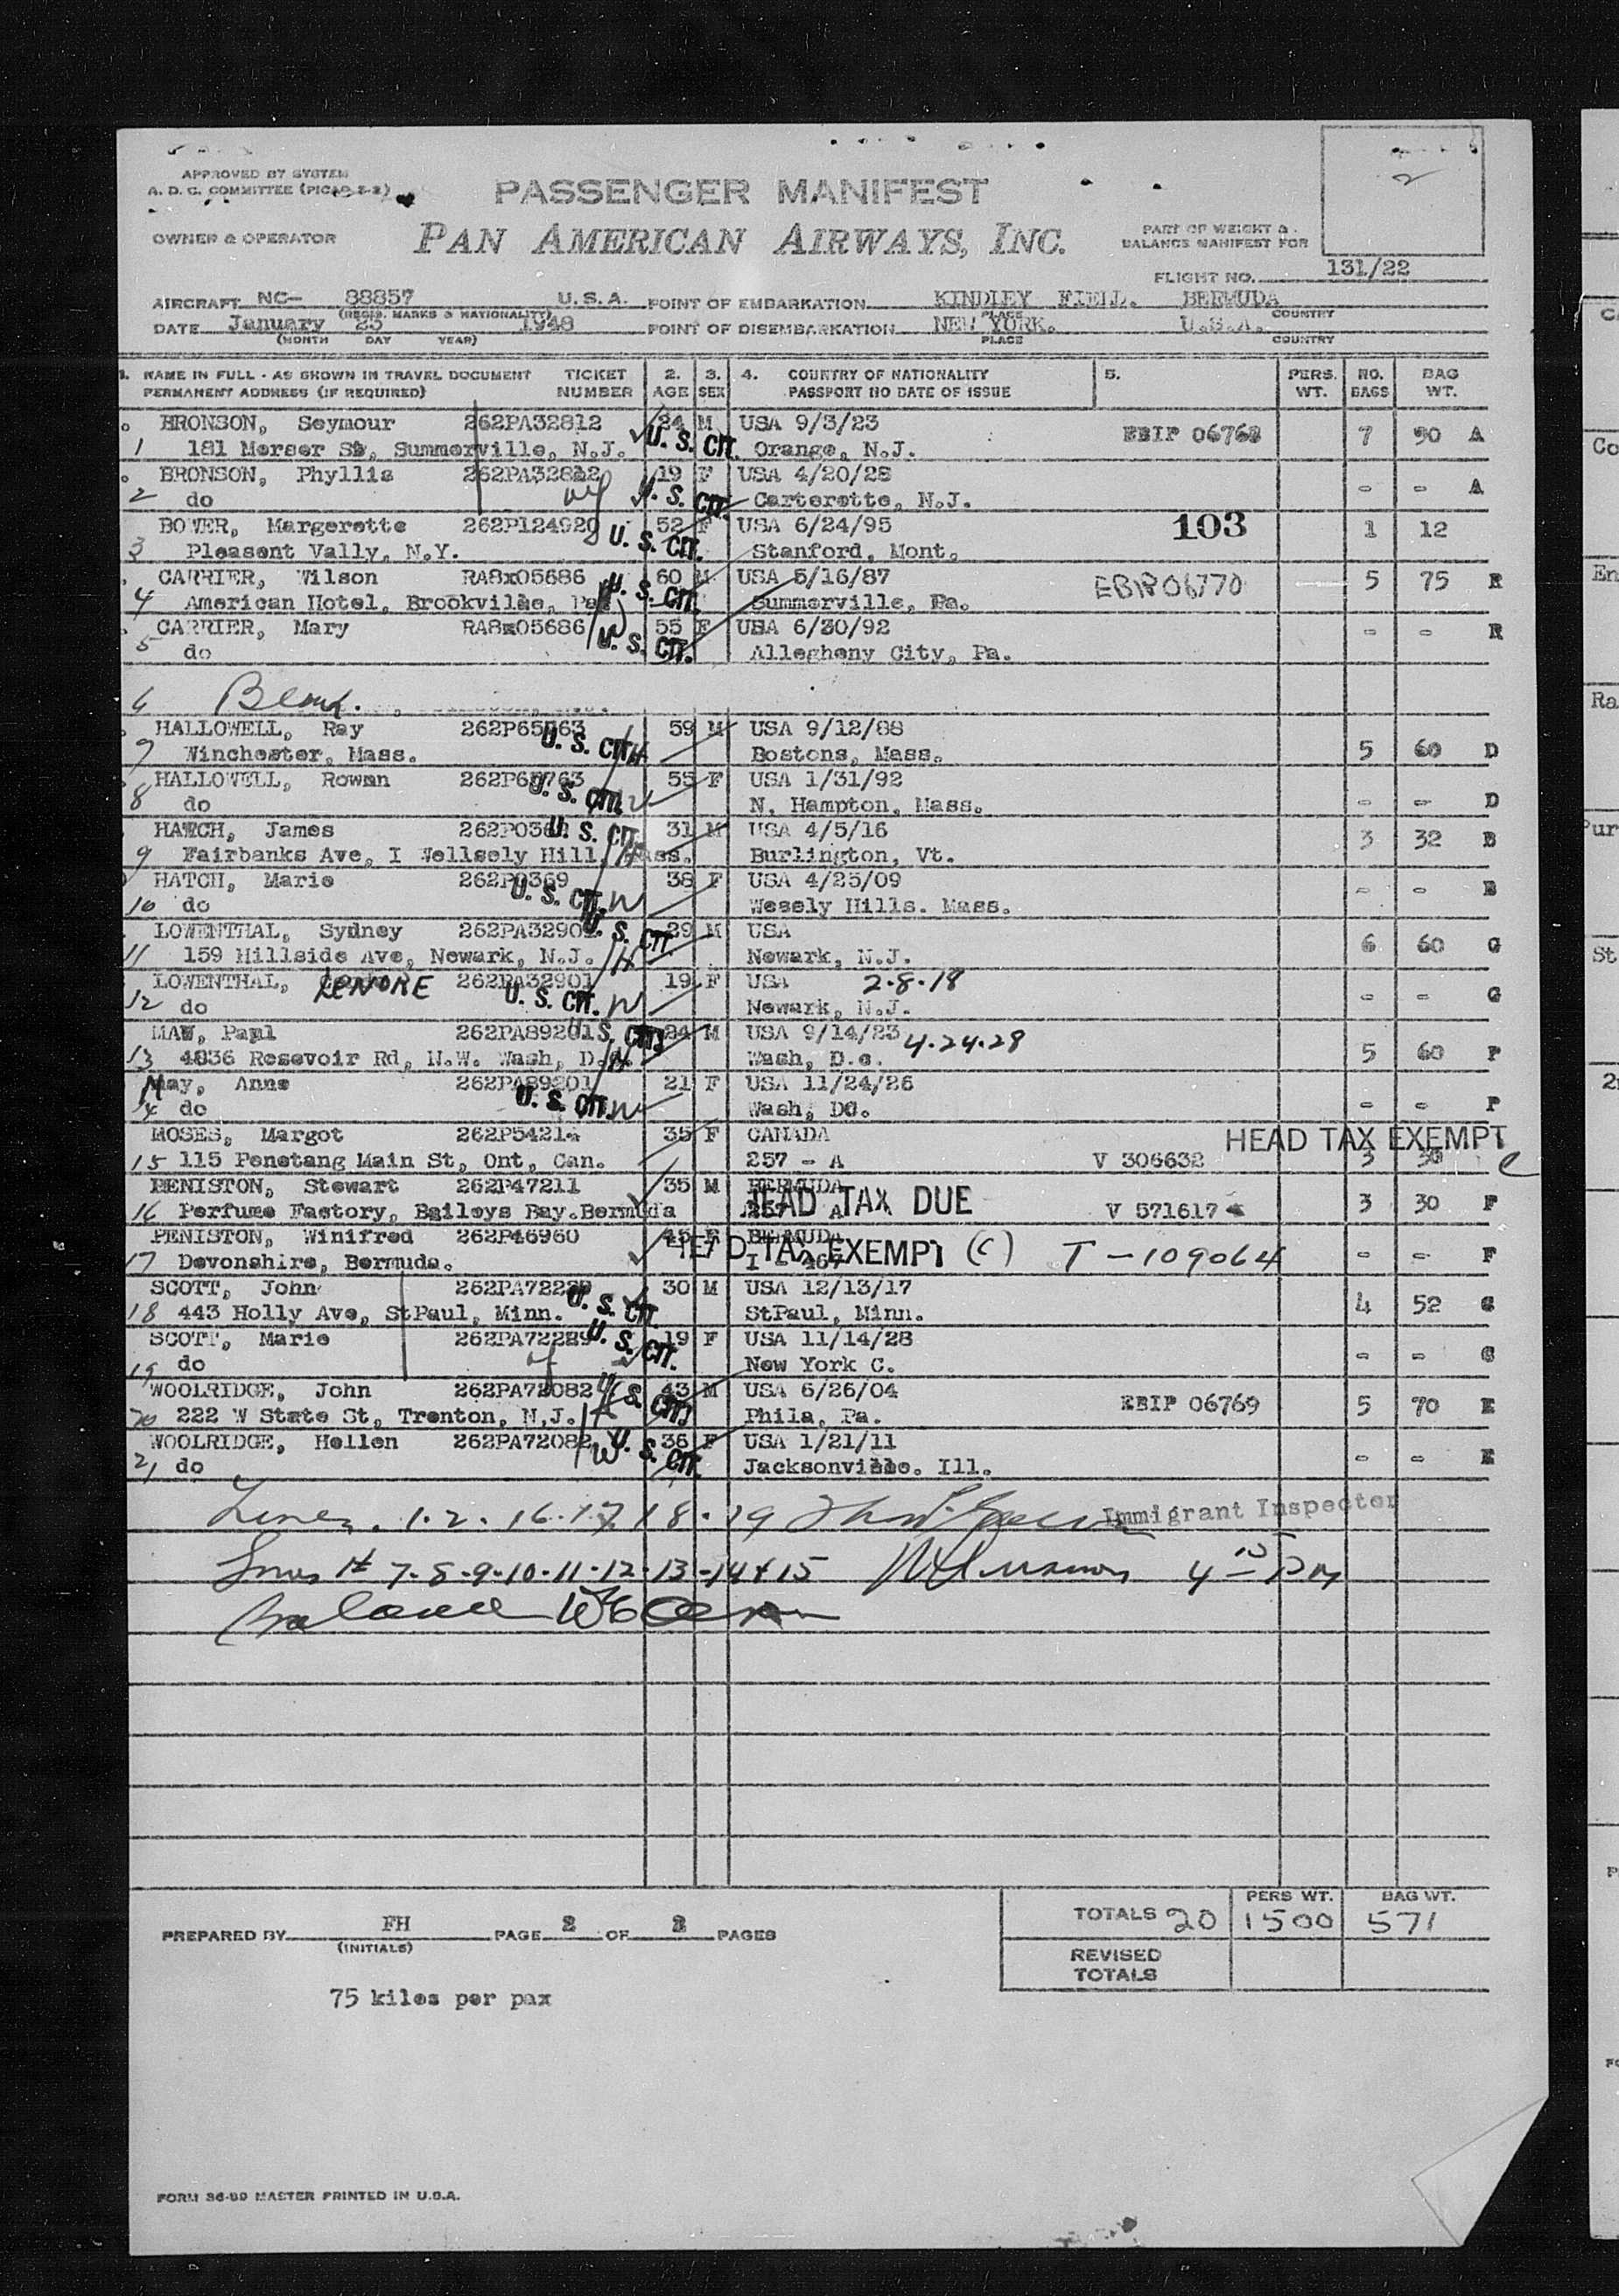 APPROVED BY SYSTEM
A. D. C. COMMITTEE (PICAO 2-2)
PASSENGER MANIFEST
2
OWNER & OPERATOR
PAN AMERICAN AIRWAYS, INC.
PART OF WEIGHT &
BALANCE MANIFEST FOR
FLIGHT NO. 131/22
AIRCRAFT NC- 88857 U.S.A. POINT OF EMBARKATION KINDLEY FIELD. BERMUDA
(REGIS. MARKS & NATIONALITY) PLACE COUNTRY
DATE January 25 1948 POINT OF DISEMBARKATION NEW YORK. U.S.A.
(MONTH DAY YEAR) PLACE COUNTRY
1. NAME IN FULL - AS SHOWN IN TRAVEL DOCUMENT TICKET 2. 3. 4. COUNTRY OF NATIONALITY 5. PERS. NO. BAG
PERMANENT ADDRESS (IF REQUIRED) NUMBER AGE SEX PASSPORT NO DATE OF ISSUE WT. BAGS WT.
BRONSON, Seymour 262PA32812 24 M USA 9/3/23 EBIP 06768 7 90 A
1 181 Merser St, Summerville, N.J. U. S. CIT. Orange, N.J.
BRONSON, Phyllis 262PA32812 19 F USA 4/20/28 - - A
2 do U. S. CIT. Carterette, N.J.
BOWER, Margerette 262P124920 52 F USA 6/24/95 103 1 12
3 Pleasent Vally, N.Y. U. S. CIT. Stanford, Mont.
CARRIER, Wilson RA8x05686 60 M USA 5/16/87 EBIP06770 5 75 R
4 American Hotel, Brookville, Pa. U. S. CIT. Summerville, Pa.
CARRIER, Mary RA8x05686 55 F USA 6/30/92 - - R
5 do U. S. CIT. Allegheny City, Pa.
6 Blank.
HALLOWELL, Ray 262P65763 59 M USA 9/12/88
7 Winchester, Mass. U. S. CIT. Bostons, Mass. 5 60 D
HALLOWELL, Rowan 262P65763 55 F USA 1/31/92
8 do U. S. CIT. N. Hampton, Mass. - - D
HATCH, James U. S. CIT. 31 M USA 4/5/16 3 32 B
9 Fairbanks Ave, I Wellsely Hill, Mass. Burlington, Vt.
HATCH, Marie 262P0369 38 F USA 4/25/09 - - B
10 do U. S. CIT. Wesely Hills. Mass.
LOWENTHAL, Sydney 262PA32901 U. S. CIT 29 M USA 6 60 G
11 159 Hillside Ave, Newark, N.J. Newark, N.J.
LOWENTHAL, LENORE 262PA32901 19 F USA 2-8-18
12 do U. S. CIT. Newark, N.J. - - G
MAW, Paul 262PA89201 U.S. CIT. 24 M USA 9/14/23 4-24-28
13 4836 Resevoir Rd, N.W. Wash, D.C. Wash, D.c. 5 60 P
May, Anne 262PA89201 21 F USA 11/24/26
14 do U. S. CIT. Wash, DC. - - P
MOSES, Margot 262P54214 35 F CANADA HEAD TAX EXEMPT
15 115 Penetang Main St, Ont, Can. 257 - A V 306632 3 30 c
PENISTON, Stewart 262P47211 35 M BERMUDA HEAD TAX DUE
16 Perfume Factory, Baileys Bay.Bermuda 257 A V 571617 3 30 F
PENISTON, Winifred 262P46960 45 F BERMUDA HEAD TAX EXEMPT (C) T - 109064 - - F
17 Devonshire, Bermuda.
SCOTT, John 262PA72289 30 M USA 12/13/17
18 443 Holly Ave, StPaul, Minn. U. S. CIT. StPaul, Minn. 4 52 G
SCOTT, Marie 262PA72289 U. S. CIT. 19 F USA 11/14/28
19 do New York C. - - G
WOOLRIDGE, John 262PA72082 U. S. CIT. 43 M USA 6/26/04 EBIP 06769 5 70 E
20 222 W State St, Trenton, N.J. Phila, Pa.
WOOLRIDGE, Hellen 262PA72082 U. S. CIT. 36 F USA 1/21/11
21 do Jacksonville. Ill. - - E
Lines. 1-2-16-17 18-19 Immigrant Inspector
Lines # 7-8-9-10-11-12-13-14+15 4 15 PM
Balance
TOTALS 20 PERS WT. 1500 BAG WT. 571
PREPARED BY FH PAGE 2 OF 2 PAGES
(INITIALS)
REVISED
TOTALS
75 kilos per pax
FORM 36-99 MASTER PRINTED IN U.S.A.